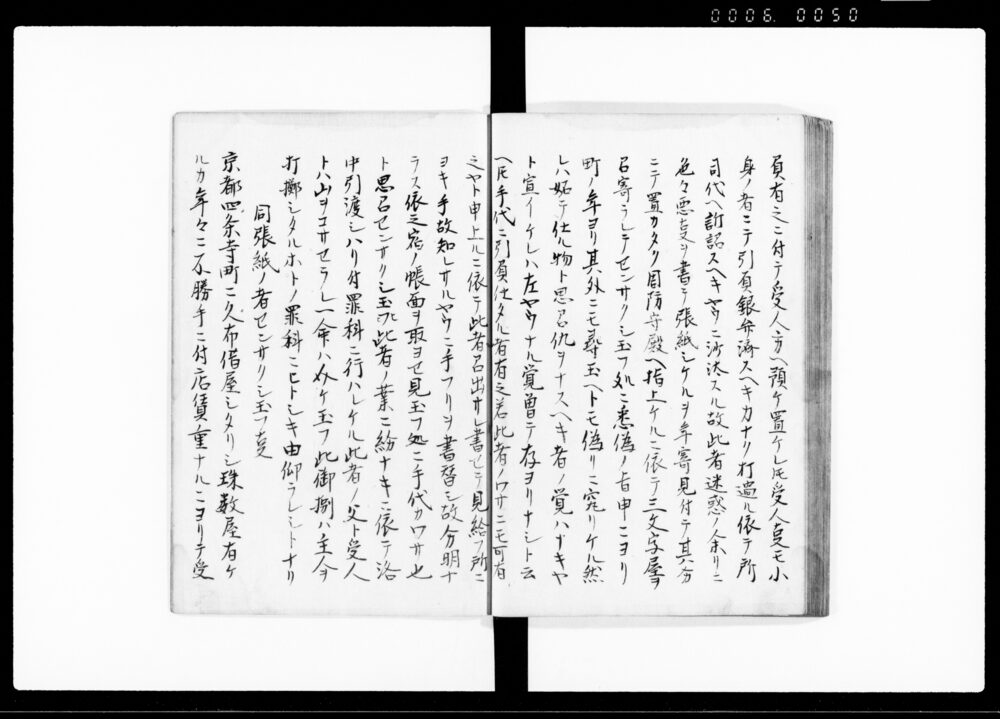 0006. 0050
負有之ニ付テ受人方ヘ預ケ置ケレ𪜈受人㕝モ小
身ノ者ニテ引負銀弁済スヘキカナリ打過ル依テ所
司代ヘ訴詔スヘキヤウニ沙汰スル故此者迷惑ノ余リニ
色々悪㕝ヲ書テ張紙シケルヲ年寄見付テ其分
ニテ置カタク周防守殿ヘ指上ケルニ依テ三文字屋ヲ
召寄ラレテセンサクシ玉フ処ニ悉偽ノ旨申ニヨリ
町ノ年ヨリ其外ニモ尋玉ヘトモ偽リニ究リケル然
レハ妬テ仕ル物ト思召仇ヲナスヘキ者ノ覚ハナキヤ
ト宣イケレハ左ヤウナル覚曽テ存ヨリナシト云
ヘ𪜈手代ニ引負仕タル者有之若此者ノワサニモ可有
之ヤト申上ルニ依テ此者召出サレ書セテ見給フ所ニ
ヨキ手故知レサルヤウニ手フリヲ書替シ故分明ナ
ラス依之宿ノ帳面ヲ取ヨセ見玉フ処ニ手代カワサ也
ト思召センサクシ玉フニ此者ノ業ニ紛ナキニ依テ洛
中引渡シハリ付罪科ニ行ハレケル此者ノ父ト受人
トハ山ヲコサセラレ一命ハ助ケ玉フ此御捌ハ主人ヲ
打擲シタルホトノ罪科ニヒトシキ由仰ラレシトナリ
同張紙ノ者センサクシ玉フ㕝
京都四条寺町ニ久布借屋シタリシ珠数屋有ケ
ルカ年々ニ不勝手ニ付店賃重ナルニヨリテ受